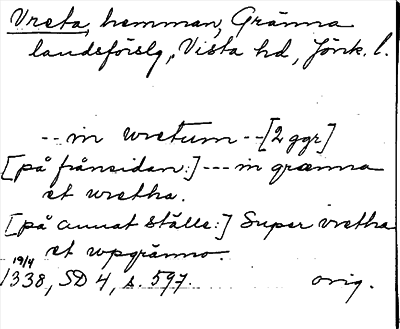 Vreta, hemman, Gränna
landsförslg, Vista hd, Jönk. l.
--- in wretum --- [2 ggr]
[på frånsidan:] --- in grænna
et wretha.
[på annat ställe:] Super vretha
et wpgränno.
19/4
1338, SD 4, s. 597. orig.